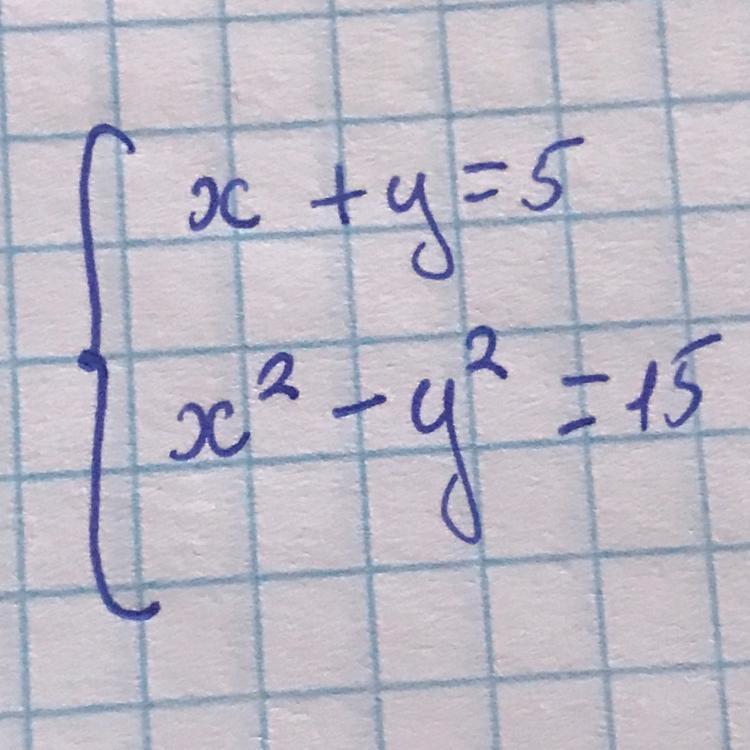 x + y = 5
x² - y² = 15